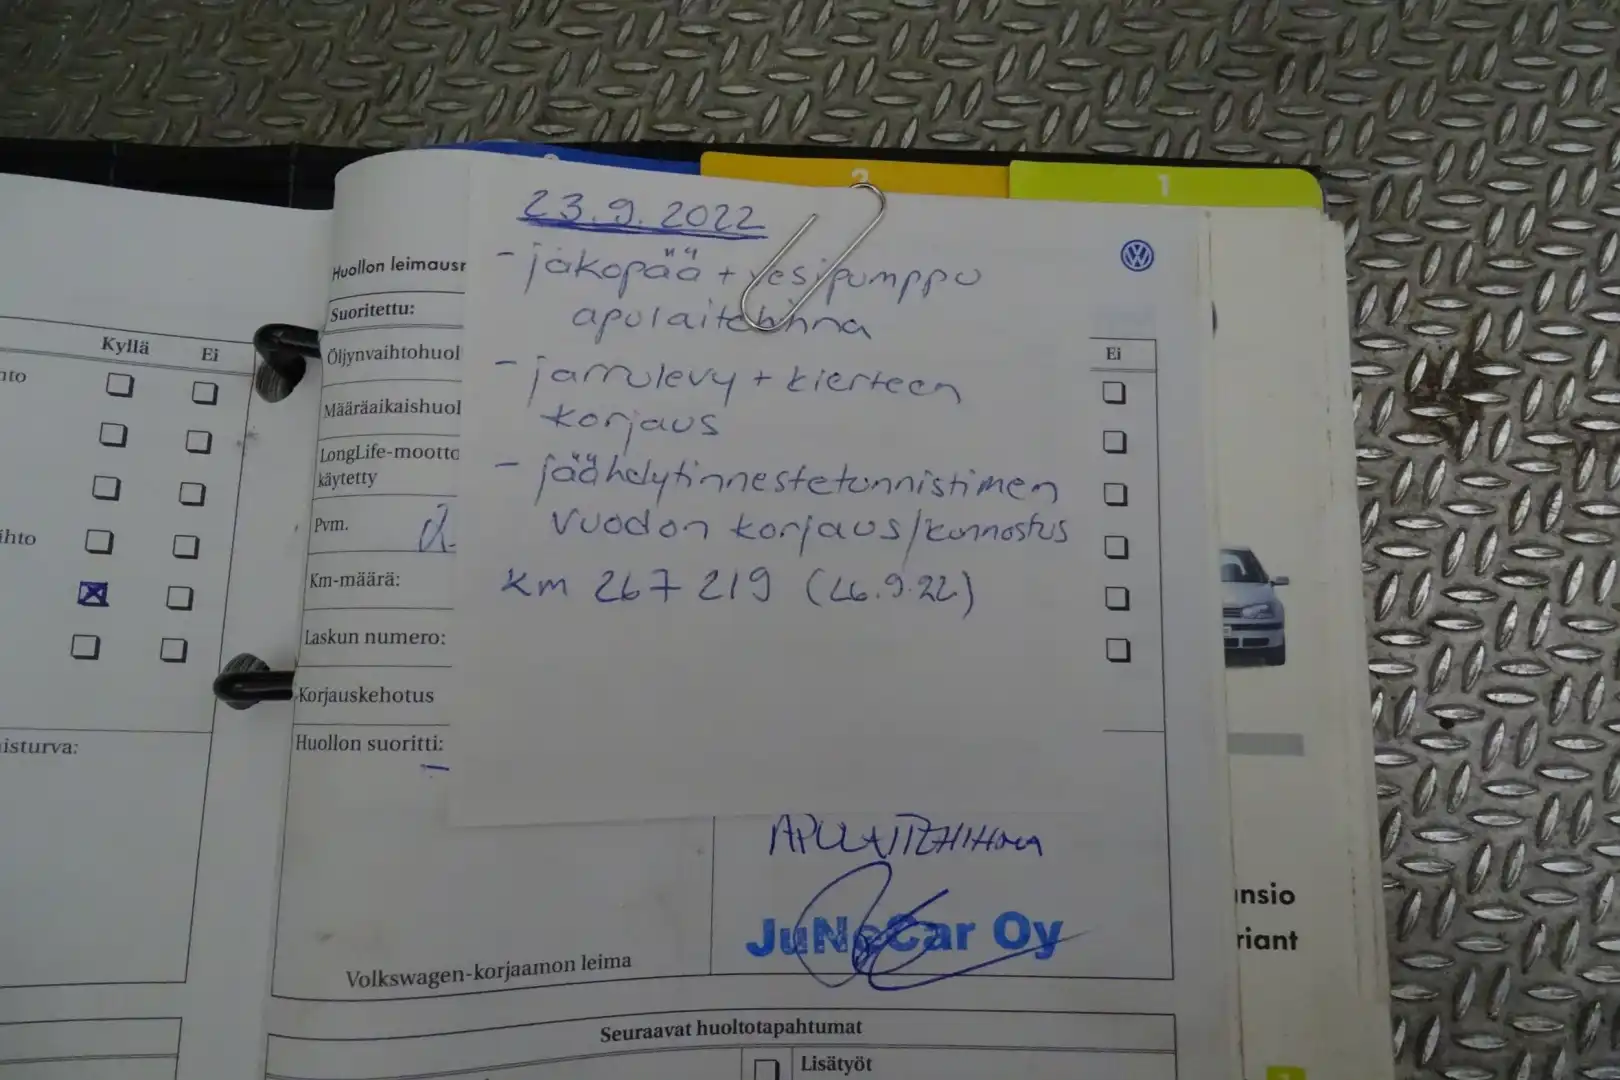 2
1
23.9.2022
- jakopää + vesipumppu
apulaitehihna
- jarrulevy + kierteen
korjaus
- jäähdytinnestetunnistimen
vuodon korjaus/kunnostus
km 267 219 (26.9.22)
Kyllä Ei
Huollon leimausr
Suoritettu:
Öljynvaihtohuol
Määräaikaishuol
LongLife-mootto
käytetty
Pvm.
Km-määrä:
Laskun numero:
Korjauskehotus
Huollon suoritti:
Ei
nto
ihto
isturva:
APULAITEHIHNA
JuNeCar Oy
Volkswagen-korjaamon leima
Seuraavat huoltotapahtumat
Lisätyöt
nsio
riant